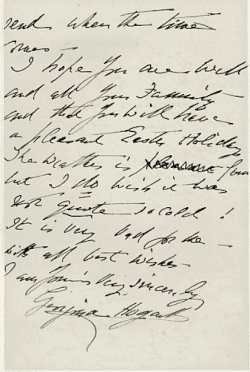 send when the time
comes
I hope you are well
and all your Family
and that you will have
a pleasant Easter Holiday
The weather is fine
but I do wish it was
not quite so cold!
It is very bad for me
with all best wishes
I am Yours Very Sincerely
Georgina Hogarth